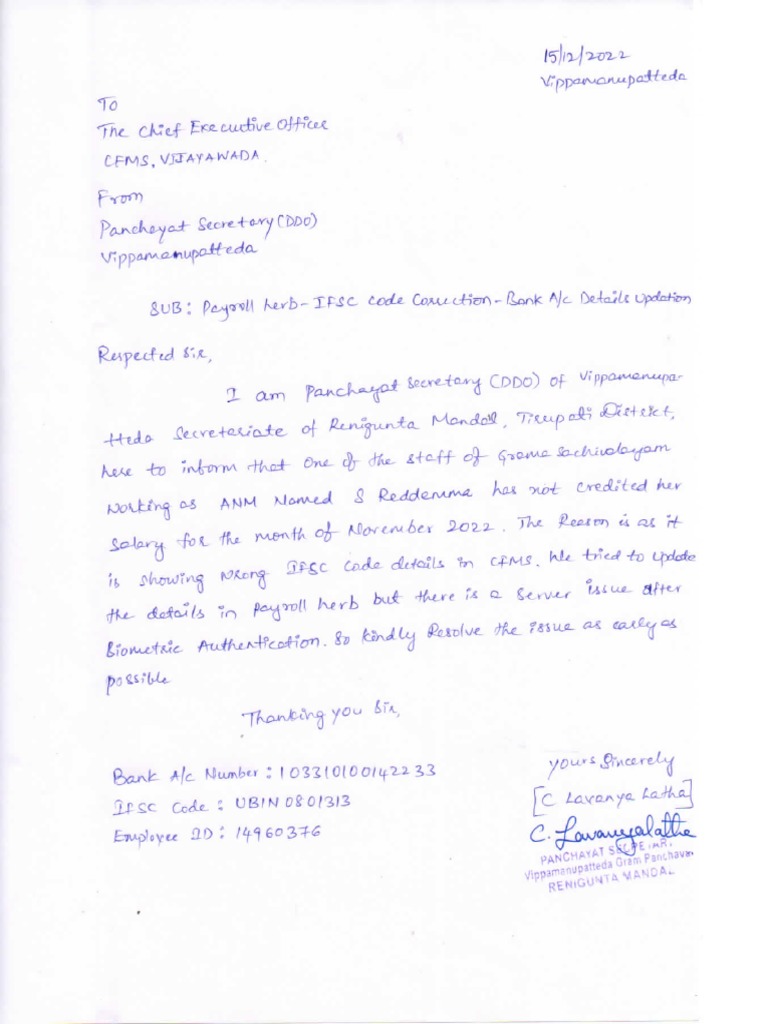 15/12/2022
Vippamanupatteda
To
The Chief Executive Officer
CFMS, VIJAYAWADA.
From
Panchayat Secretary (DDO)
Vippamanupatteda
SUB: Payroll herb - IFSC Code Correction - Bank A/c Details Updation
Respected Sir,
I am Panchayat Secretary (DDO) of Vippamanupa-
tteda Secretariate of Renigunta Mandal, Tirupati District,
here to inform that One of the staff of Grama Sachivalayam
Working as ANM Named S Reddemma has not credited her
Salary for the month of November 2022. The Reason is as it
is showing Wrong IFSC Code details in CFMS. We tried to update
the details in Payroll herb but there is a Server issue after
Biometric Authentication. So kindly Resolve the issue as early as
possible
Thanking you Sir,
Bank A/c Number : 103310100142233
IFSC Code : UBIN0801313
Employee ID : 14960376
Yours Sincerely
[C Lavanya Latha]
C. Lavanyalatha
PANCHAYAT SECRETAR
Vippamanupatteda Gram Panchayat
RENIGUNTA MANDAL